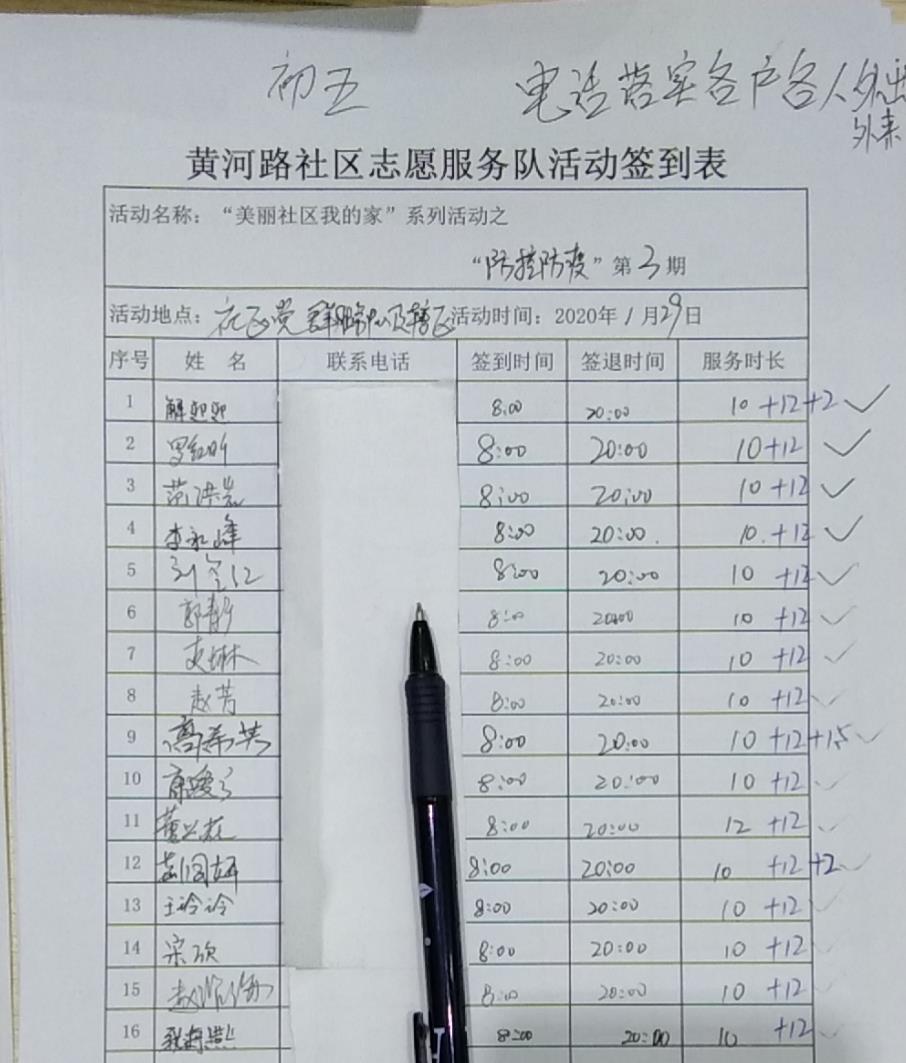 初五 电话落实各户各人外出
外来
黄河路社区志愿服务队活动签到表
活动名称：“美丽社区我的家”系列活动之
“防控防疫”第3期
活动地点：社区党群服务中心及辖区 活动时间：2020年1月29日
序号 姓 名 联系电话 签到时间 签退时间 服务时长
1 解迎迎 8:00 20:00 10 +12+2 ✓
2 罗红昕 8:00 20:00 10+12 ✓
3 范洪岩 8:00 20:00 10 +12 ✓
4 李永峰 8:00 20:00. 10. +12 ✓
5 8:00 20:00 10 +12 ✓
6 郭静 8:00 20:00 10 +12 ✓
7 夹琳 8:00 20:00 10 +12 ✓
8 赵芳 8:00 20:00 10 +12 ✓
9 高希英 8:00 20:00 10 +12+15 ✓
10 8:00 20:00 10 +12 ✓
11 8:00 20:00 12 +12 ✓
12 8:00 20:00 10 +12+2 ✓
13 王诊诊 8:00 20:00 10 +12 ✓
14 宋欣 8:00 20:00 10 +12
15 赵 8:00 20:00 10 +12
16 8:00 20:00 10 +12